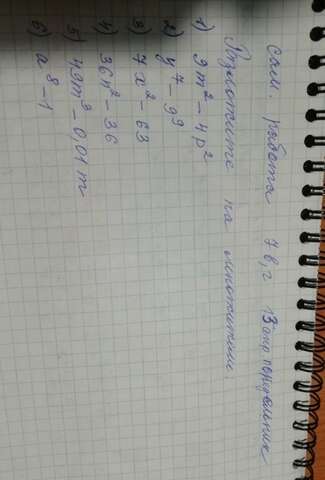 сам. работа 7 в, г 13 апр понедельник
Разложите на множители:
1) 9m² - 4p²
2) y⁷ - y⁹
3) 7x² - 63
4) 36n² - 36
5) 49m³ - 0,01m
6) a⁸ - 1